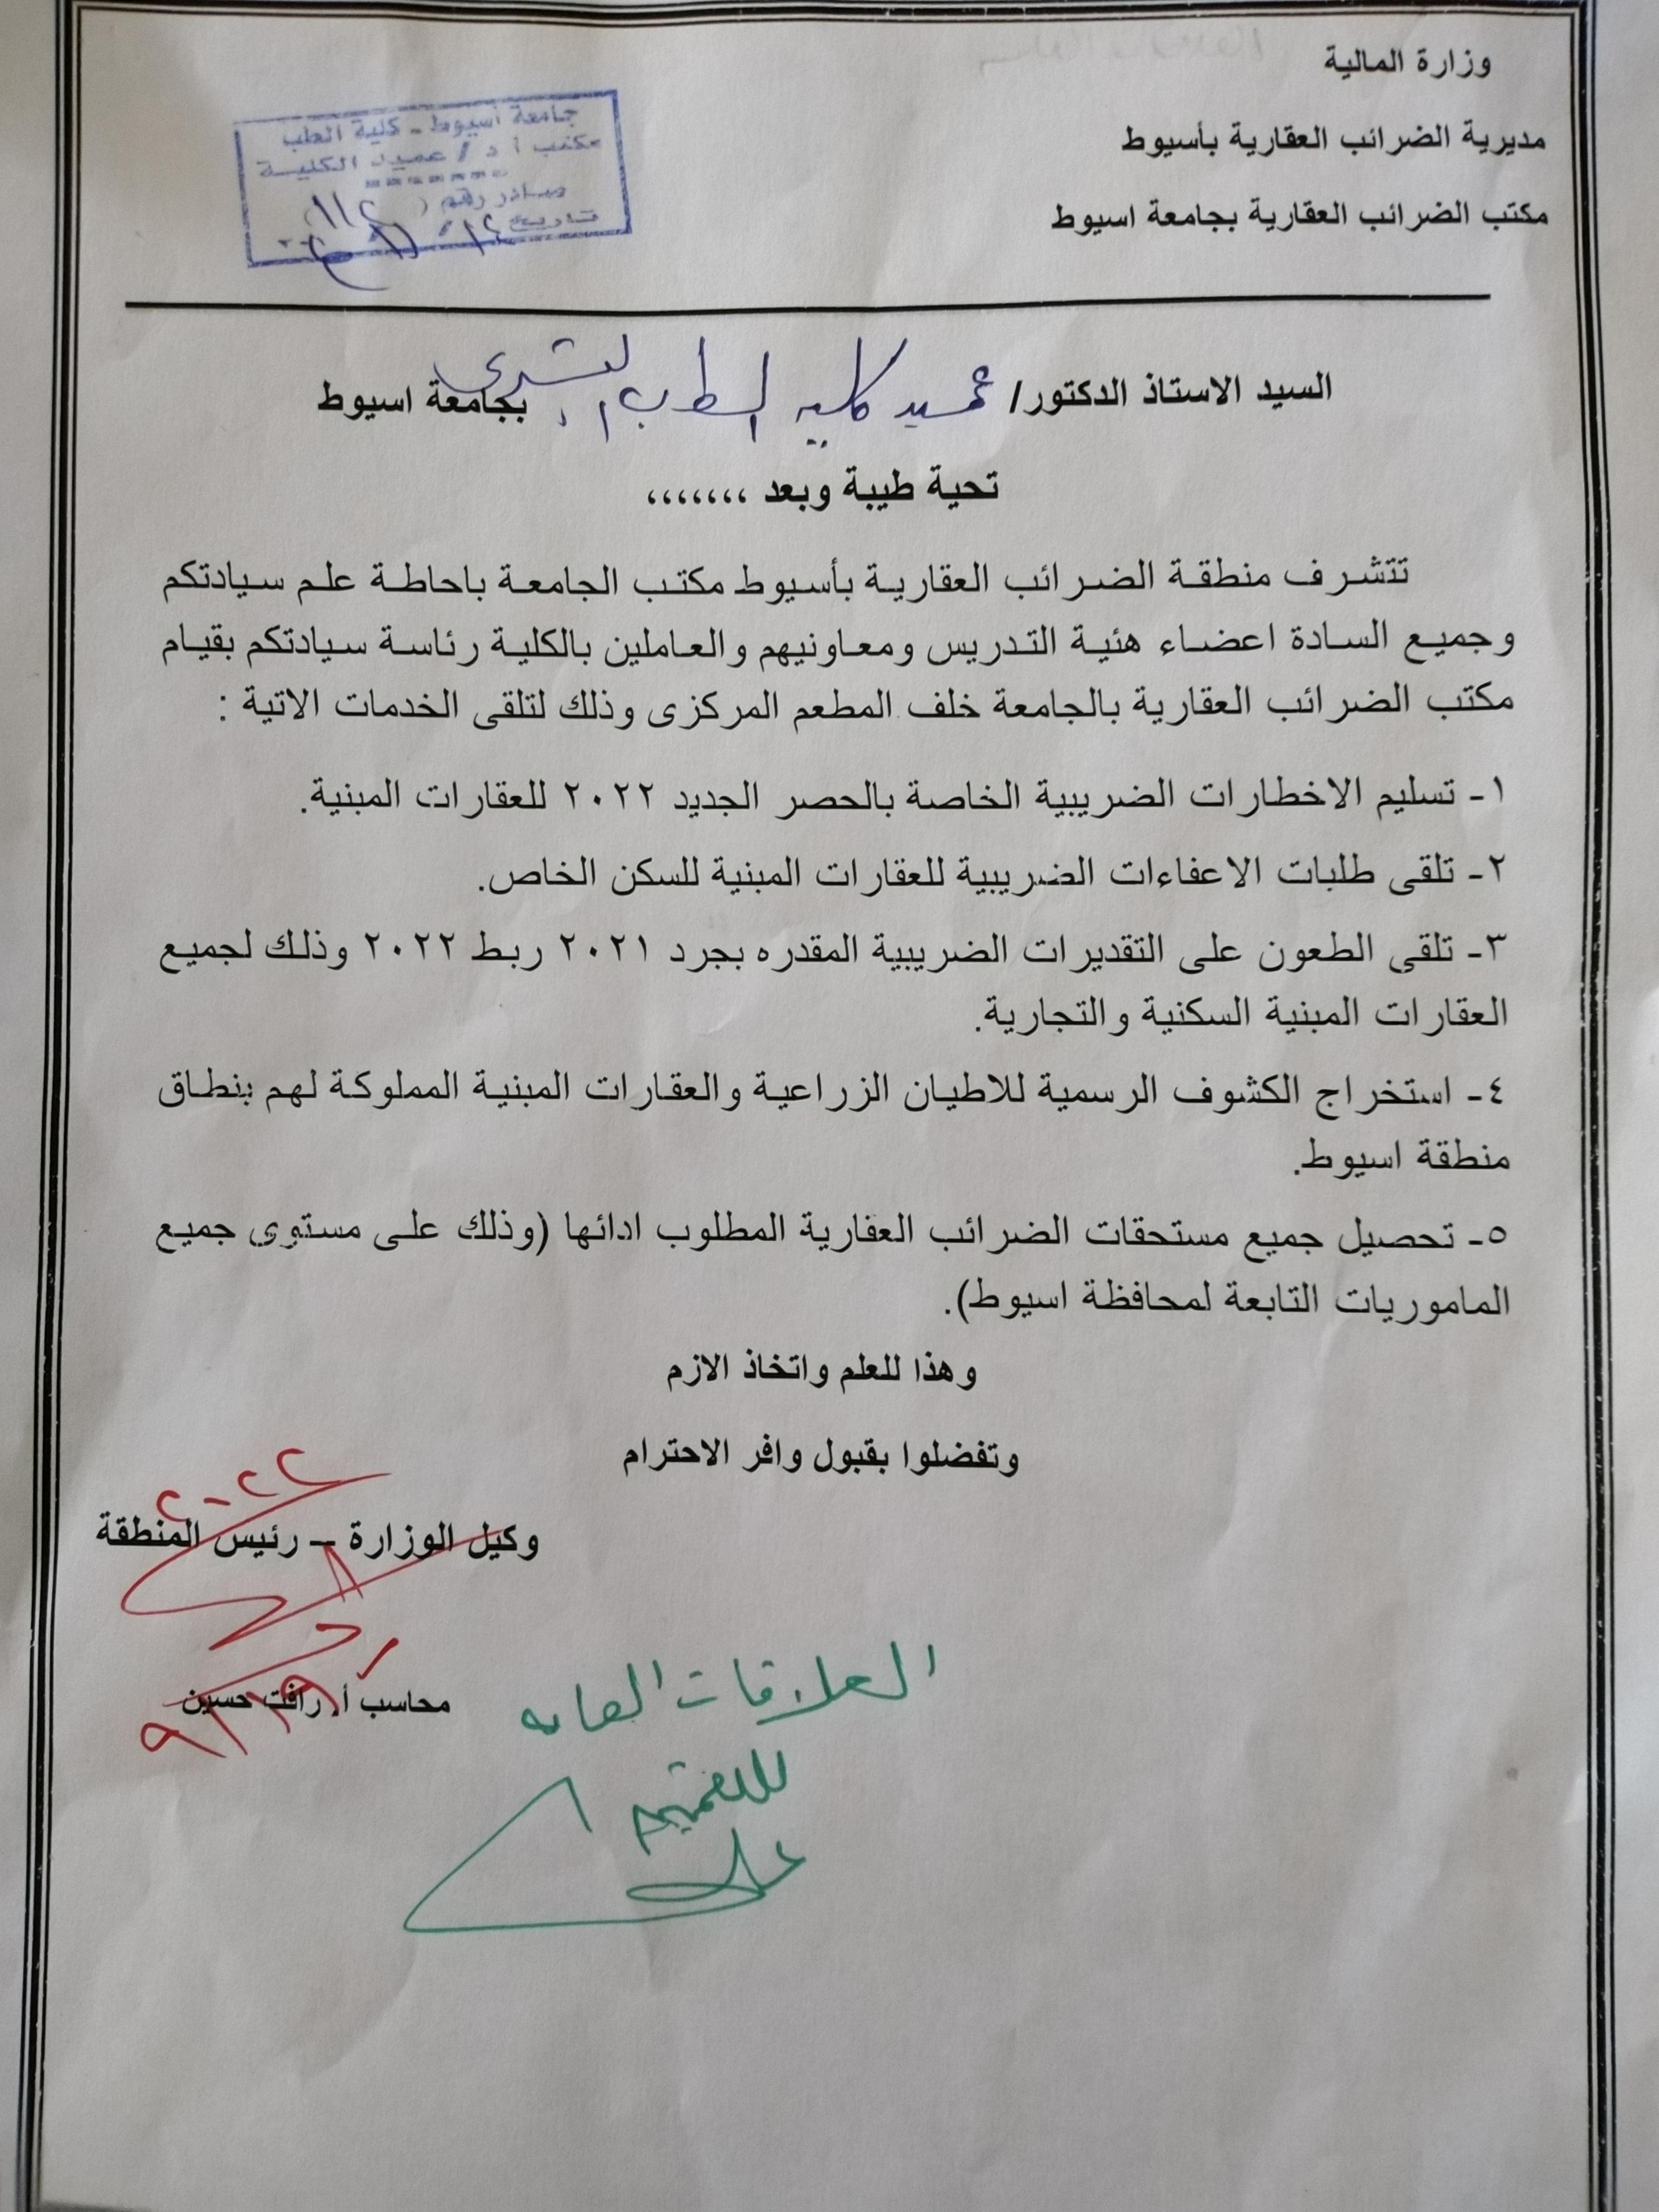 وزارة المالية
مديرية الضرائب العقارية بأسيوط
مكتب الضرائب العقارية بجامعة اسيوط
جامعة أسيوط - كلية الطب
مكتب أ د / عميد الكلية
صادر رقم (
تاريخ
السيد الاستاذ الدكتور/ عميد كلية الطب البشرى بجامعة اسيوط
تحية طيبة وبعد ،،،،،،،
تتشرف منطقة الضرائب العقارية بأسيوط مكتب الجامعة باحاطة علم سيادتكم
وجميع السادة اعضاء هئية التدريس ومعاونيهم والعاملين بالكلية رئاسة سيادتكم بقيام
مكتب الضرائب العقارية بالجامعة خلف المطعم المركزى وذلك لتلقى الخدمات الاتية :
١- تسليم الاخطارات الضريبية الخاصة بالحصر الجديد ٢٠٢٢ للعقارات المبنية.
٢- تلقى طلبات الاعفاءات الضريبية للعقارات المبنية للسكن الخاص.
٣- تلقى الطعون على التقديرات الضريبية المقدره بجرد ٢٠٢١ ربط ٢٠٢٢ وذلك لجميع
العقارات المبنية السكنية والتجارية.
٤- استخراج الكشوف الرسمية للاطيان الزراعية والعقارات المبنية المملوكة لهم بنطاق
منطقة اسيوط.
٥- تحصيل جميع مستحقات الضرائب العفارية المطلوب ادائها (وذلك على مستوى جميع
الماموريات التابعة لمحافظة اسيوط).
وهذا للعلم واتخاذ الازم
وتفضلوا بقبول وافر الاحترام
٢٠٢٢
وكيل الوزارة – رئيس المنطقة
محاسب أ/ رافت حسين
العلاقات العامه
للتعميم